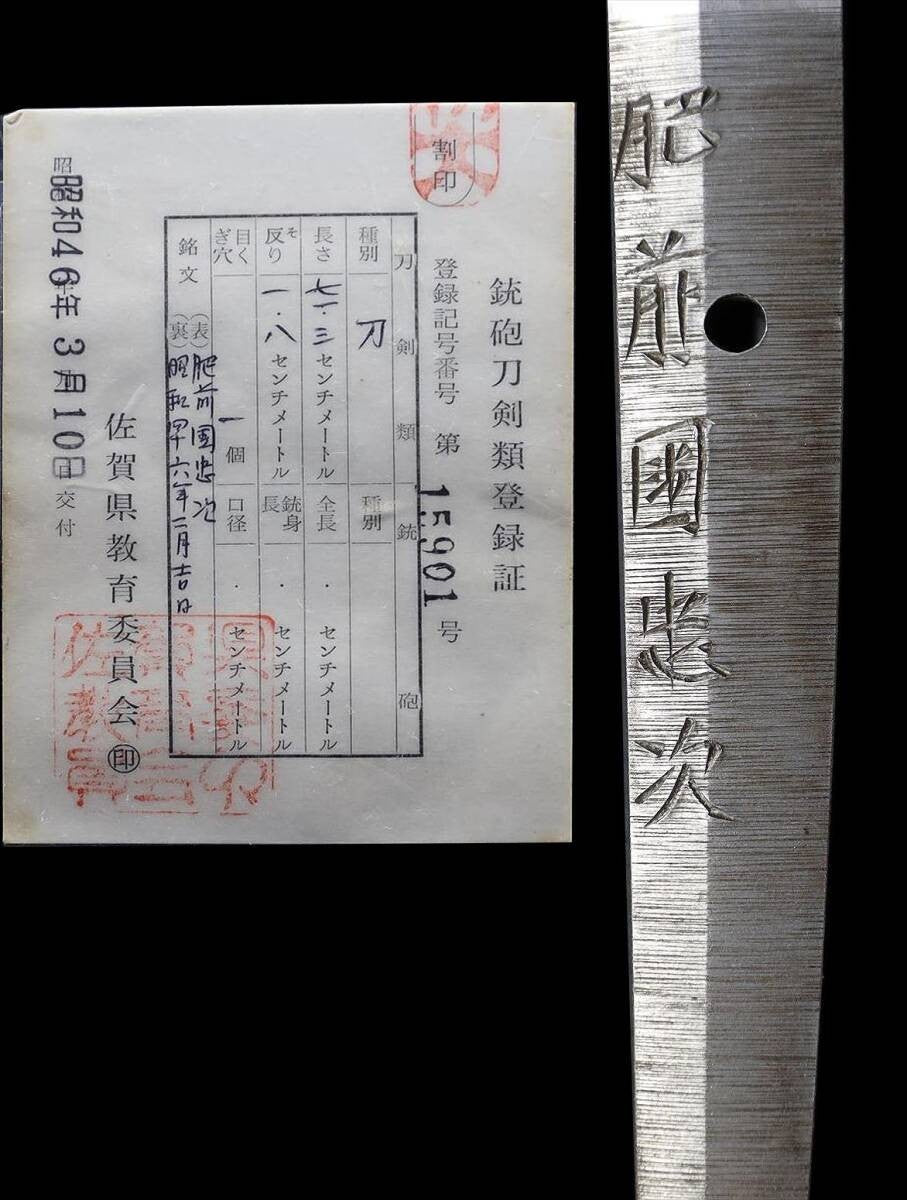 割印
銃砲刀剣類登録証
登録記号番号 第 15901 号
刀剣類 銃砲
種別 刀 種別
長さ 七一・三 センチメートル 全長 ・ センチメートル
反り そり 一・八 センチメートル 銃身長 ・ センチメートル
目くぎ穴 一個 口径 ・ センチメートル
銘文 (表) 肥前国忠次
(裏) 昭和卌六年二月吉日
佐賀県教育委員会 印
昭和46年3月10日 交付
肥前國忠次